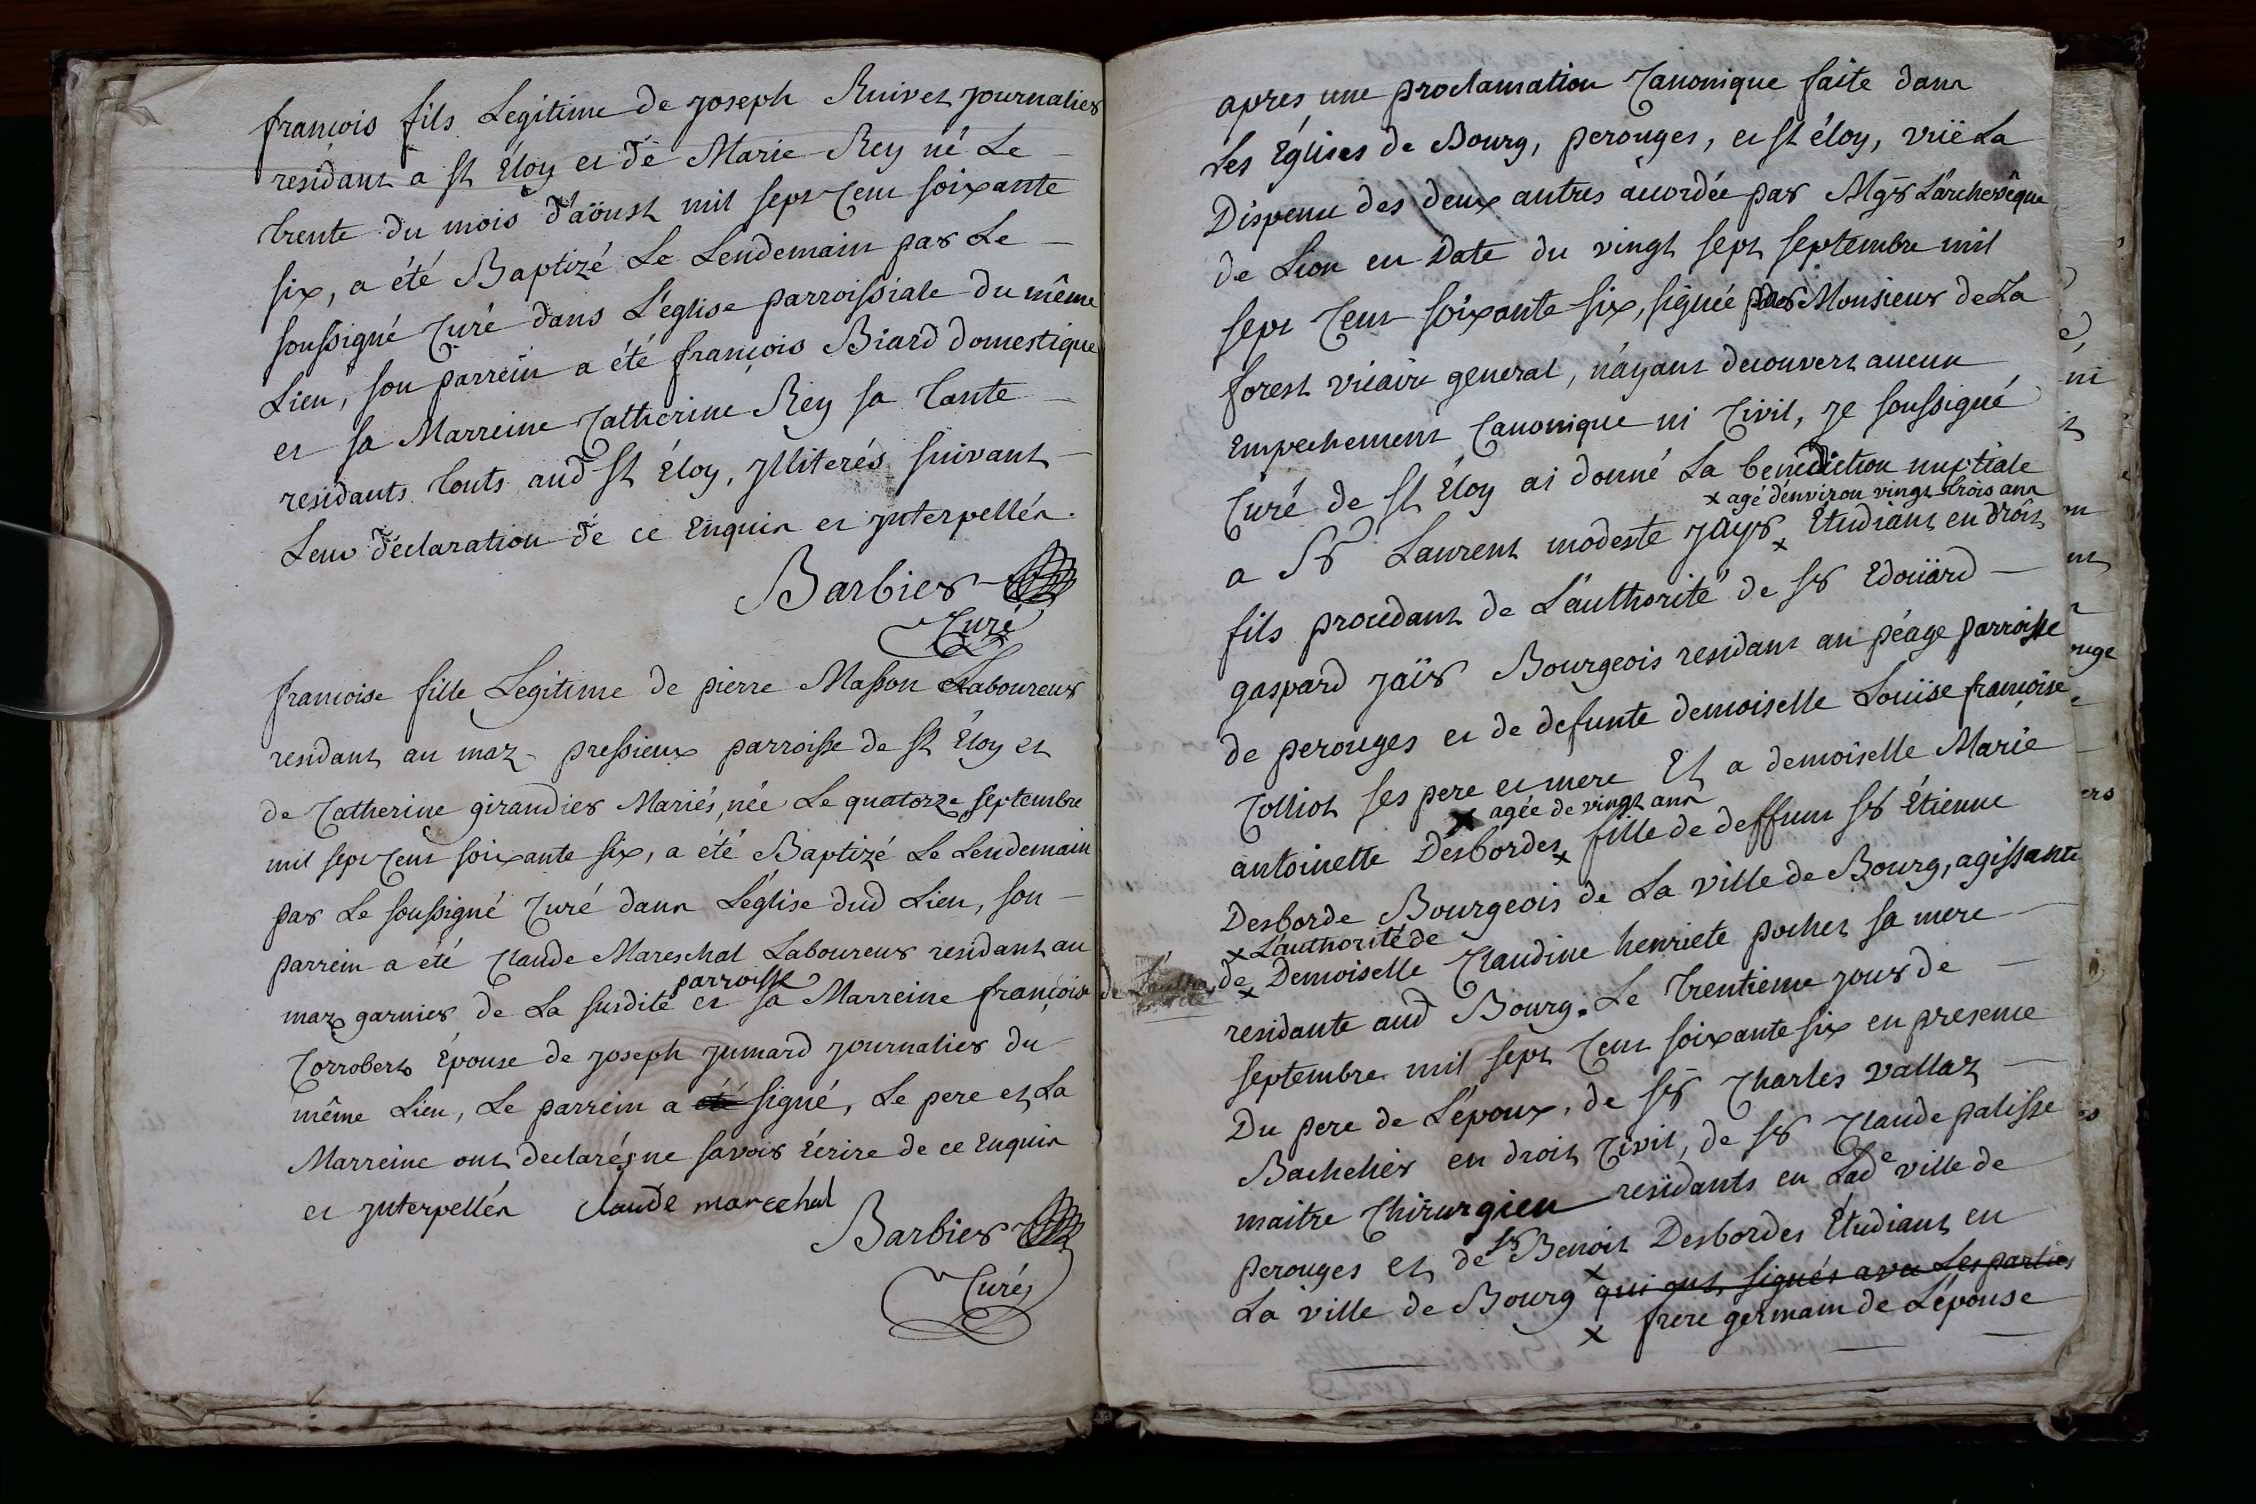 françois fils Legitime de joseph Ruivet journalier
residant a st Éloy et de Marie Rey né Le
trente du mois d'aöust mil sept cent soixante
six, a été Baptizé Le Lendemain par Le
soussigné Curé dans L'église parroissiale du même
Lieu, son parrein a été françois Biard domestique
et sa Marreine Catherine Rey sa tante
residants touts aud st Éloy, jlliterés suivant
Leur déclaration de ce Enquis et jnterpellés.
Barbier
Curé
francoise fille Legitime de pierre Masson Laboureur
residant au maz pressieux parroisse de st Éloy et
de Catherine girandier Mariés, née Le quatorze septembre
mil sept cent soixante six, a été Baptizé Le Lendemain
par Le soussigné Curé dans L'église dud Lieu, son
parrein a été Claude Mareschal Laboureur residant au
parroisse
maz garnier de La susdite et sa Marreine françoise
Corrobert Épouse de joseph jumard journalier du
même Lieu, Le parrein a été signé, Le pere et La
Marreine ont declarés ne savoir Écrire de ce Enquis
et jnterpellés claude marechal
Barbier
Curé
apres une proclamation Canonique faite dans
Les Églises de Bourg, perouges, et st éloy, vüe La
Dispense des deux autres acordée par Mgr L'archevêque
de Lion en Date du vingt sept septembre mil
sept cent soixante six, signée par Monsieur de La
forest vicaire general, n'ayant decouvert aucun
Empechement Canonique ni Civil, je soussigné
Curé de st Éloy ai donné La benediction nuptiale
x agé d'environ vingt trois ans
a Sr Laurent modeste jayr x Etudiant en droit
fils procedant de L'authorité de sr Edoüard
gaspard jaïr Bourgeois residant au péage parroisse
de perouges et de defunte demoiselle Louïse françoise
Colliot ses pere et mere Et a demoiselle Marie
x agée de vingt ans
antoinette Desbordes x fille de deffunt sr Étienne
Desborde Bourgeois de La ville de Bourg, agissante
x L'authorité de
de x Demoiselle Claudine henriete pochet sa mere
residante aud Bourg. Le trentieme jour de
septembre mil sept cent soixante six en presence
Du pere de L'époux, de sr Charles vallaz
Bachelier en droit Civil, de sr Claude palisse
maitre Chirurgien residants en Lade ville de
perouges et de sr Benoit Desbordes Étudiant en
La ville de Bourg x qui ont signés avec Les parties
x frere germain de L'épouse